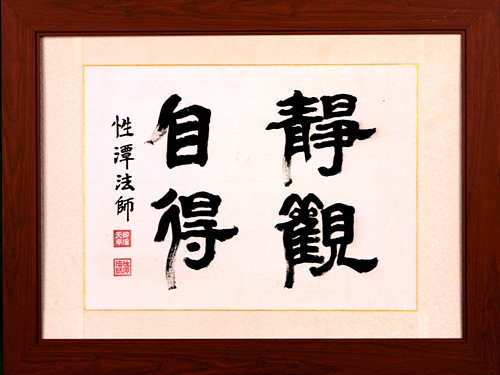 靜觀
自得
性潭法師